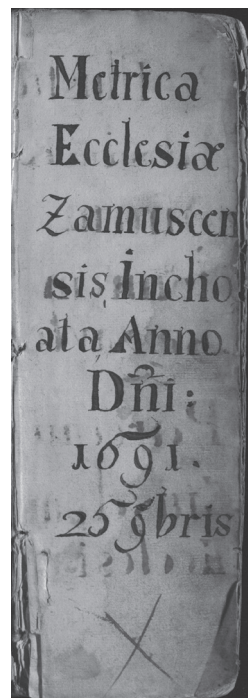 Metrica
Ecclesiæ
Zamuscen
sis, Incho
ata, Anno
Dñi:
1691.
25 9bris